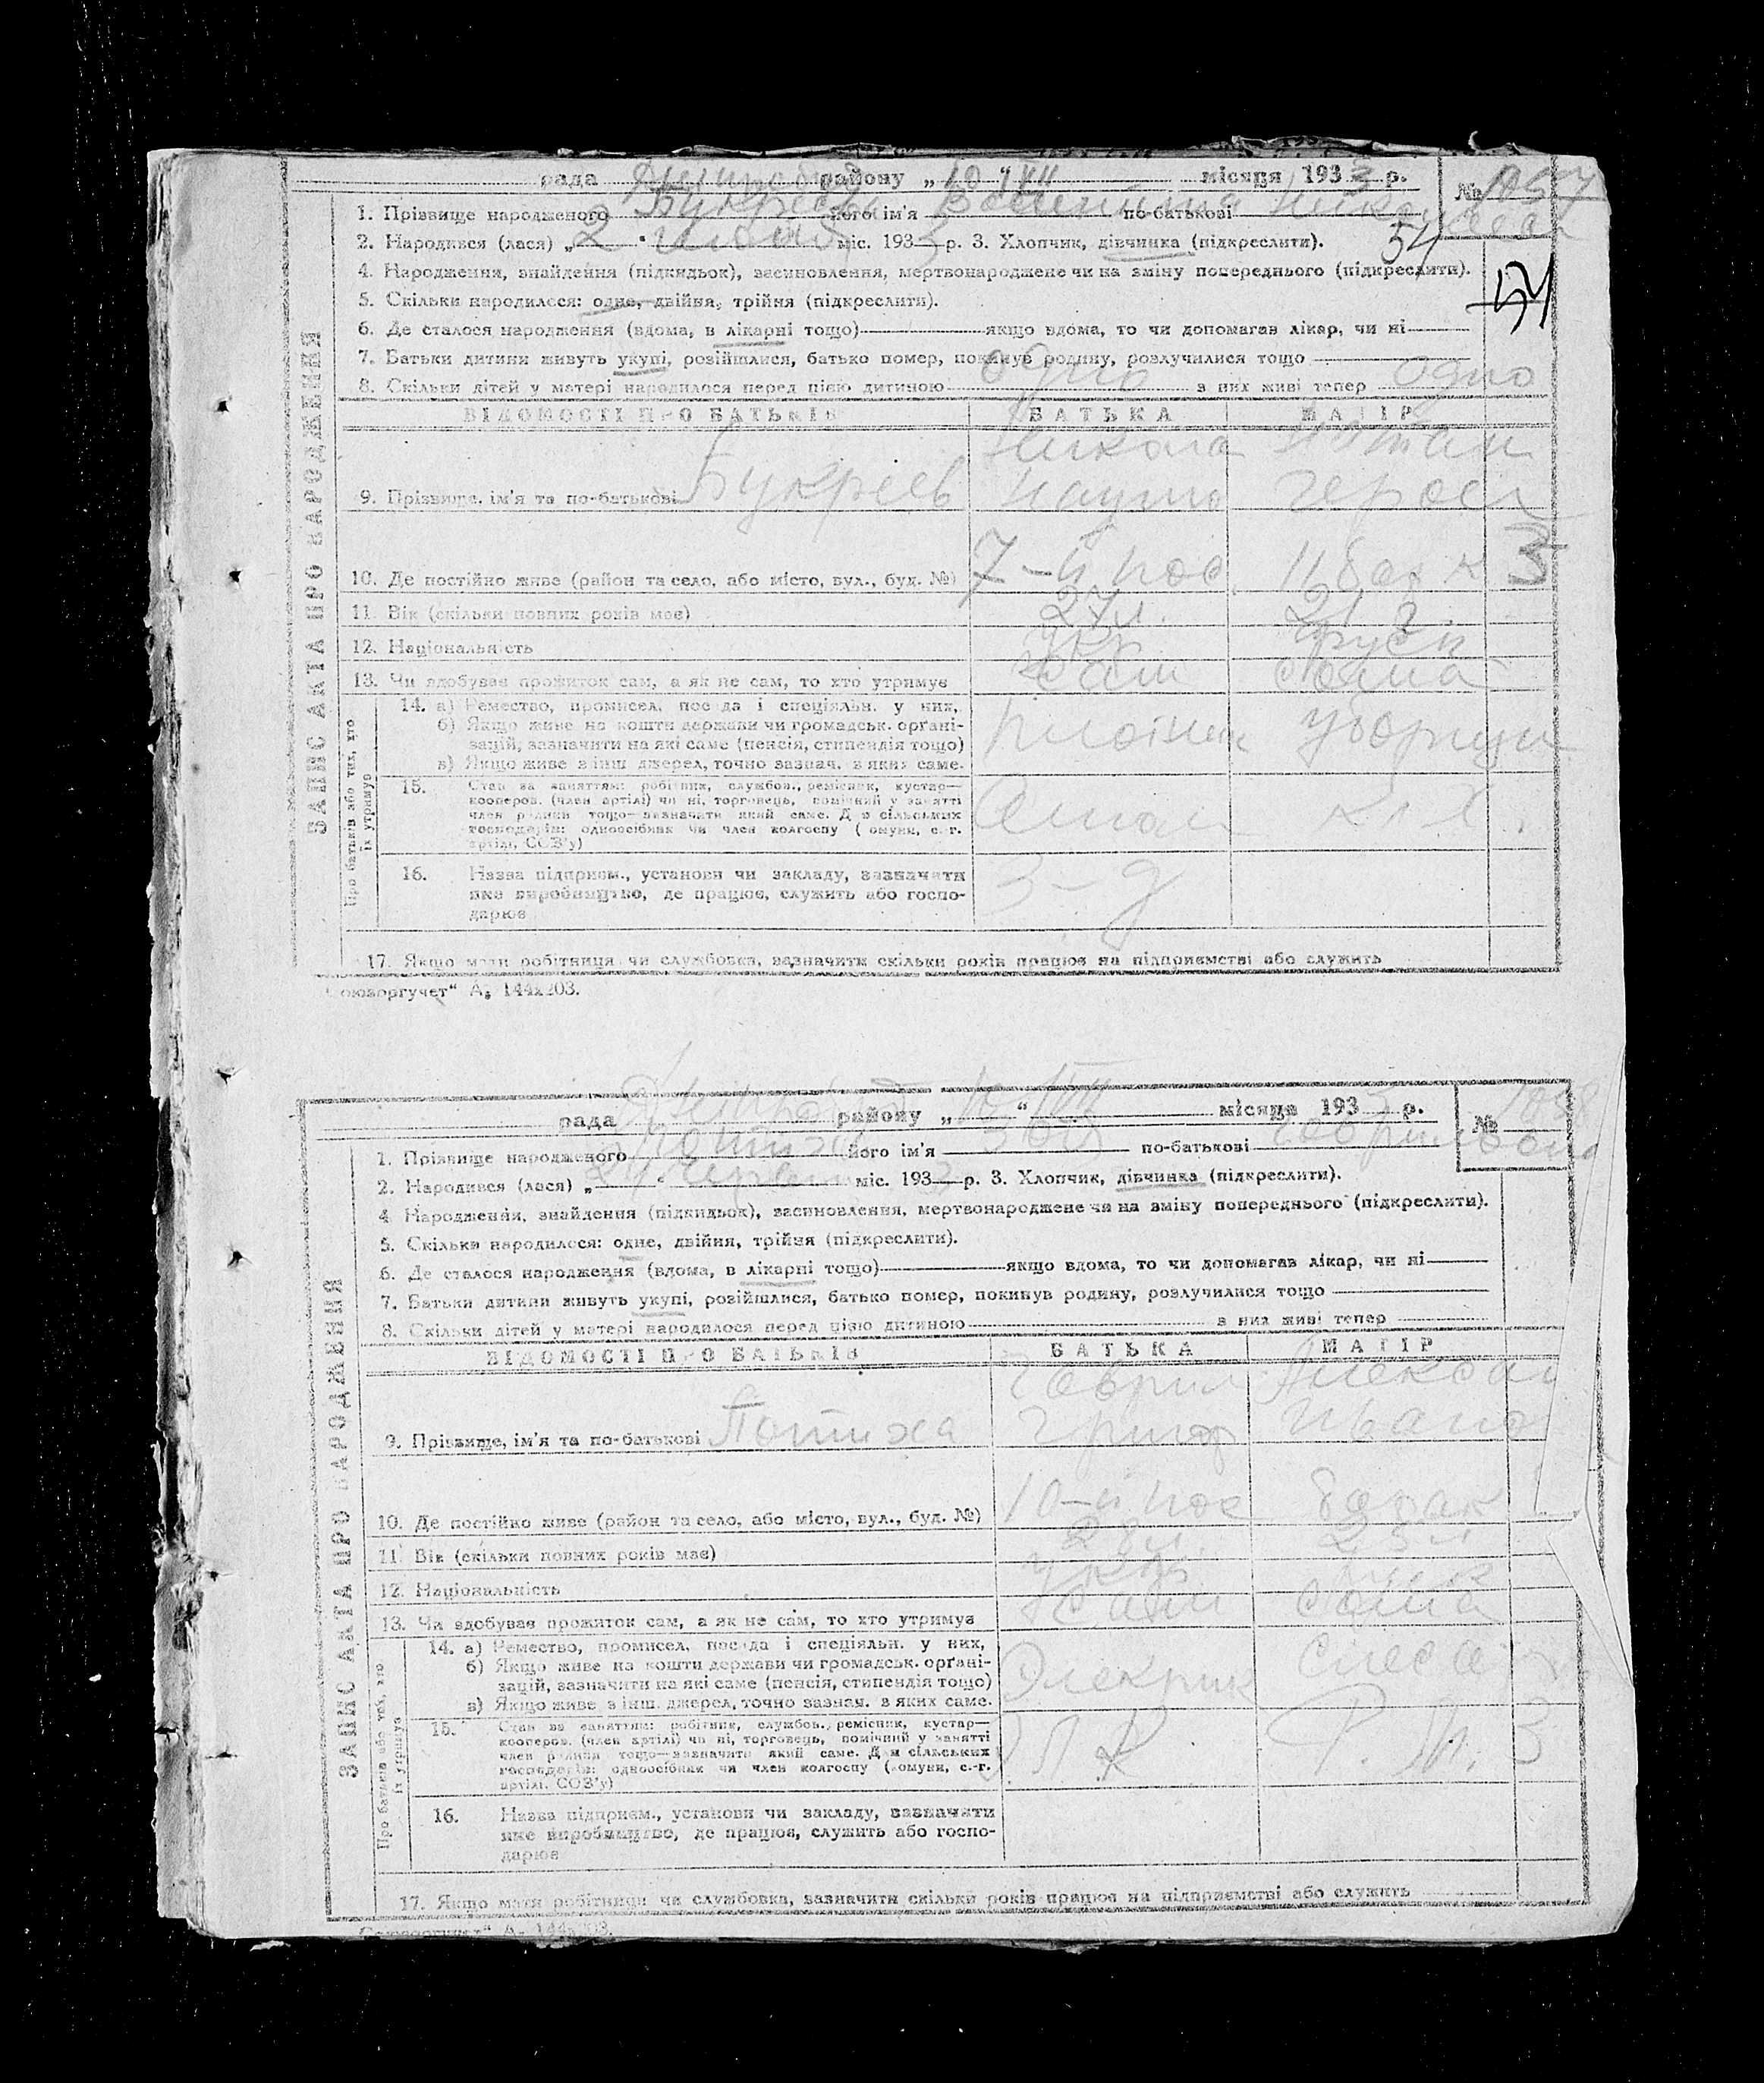 рада району „10“ VII місяця 1933 р. № 1057
1. Прізвище народженого його ім'я по-батькові
2. Народився (лася) „2“ міс. 193 р. 3. Хлопчик, дівчинка (підкреслити). 54
4. Народження, знайдення (підкидьок), засиновлення, мертвонароджене чи на зміну попереднього (підкреслити).
54
5. Скільки народилося: одне, двійня, трійня (підкреслити).
6. Де сталося народження (вдома, в лікарні тощо) якщо вдома, то чи допомагав лікар, чи ні
7. Батьки дитини живуть укупі, розійшлися, батько помер, покинув родину, розлучилися тощо
8. Скільки дітей у матері народилося перед цією дитиною одно з них живі тепер одно
ВІДОМОСТІ ПРО БАТЬКІВ БАТЬКА МАТІР
Никола
9. Прізвище, ім'я та по-батькові Букрєєв Наумо
10. Де постійно живе (район та село, або місто, вул., буд. №) 7-й пос 11 барк 3
11. Вік (скільки повних років має) 27 л. 21 г.
12. Національність укр руск
13. Чи здобуває прожиток сам, а як не сам, то хто утримує сам сама
14. а) Ремество, промисел, посада і спеціяльн. у них,
б) Якщо живе на кошти держави чи громадськ. органі-
зацій, зазначити на які саме (пенсія, стипендія тощо)
в) Якщо живе з інш джерел, точно зазнач. з яких саме.
15. Стан за заняттям: робітник, службов., ремісник, кустар—
кооперов. (член артілі) чи ні, торговець, помічний у занятті
член родини тощо—зазначити який саме. Для сільських
господарів: одноосібник чи член колгоспу (комуни, с.-г.
артілі, СОЗ'у)
16. Назва підприєм., установи чи закладу, зазначити
яке виробництво, де працює, служить або госпо-
дарює
17. Якщо мати робітниця чи службовка, зазначити скільки років працює на підприємстві або служить
ЗАПИС АКТА ПРО НАРОДЖЕННЯ
Про батьків або тих, хто
їх утримує
оюзоргучет“ А₅ 144х203.
рада району „10“ VII місяця 193 р. № 1058
1. Прізвище народженого Потиха його ім'я по-батькові
2. Народився (лася) „ міс. 193 р. 3. Хлопчик, дівчинка (підкреслити).
4. Народження, знайдення (підкидьок), засиновлення, мертвонароджене чи на зміну попереднього (підкреслити).
5. Скільки народилося: одне, двійня, трійня (підкреслити).
6. Де сталося народження (вдома, в лікарні тощо) якщо вдома, то чи допомагав лікар, чи ні
7. Батьки дитини живуть укупі, розійшлися, батько помер, покинув родину, розлучилися тощо
8. Скільки дітей у матері народилося перед цією дитиною з них живі тепер
ВІДОМОСТІ ПРО БАТЬКІВ БАТЬКА МАТІР
Гаврил Алексан
9. Прізвище, ім'я та по-батькові Потиха Григор Ивано
10. Де постійно живе (район та село, або місто, вул., буд. №) 10-й пос барак 1
11. Вік (скільки повних років має) 28 л. 23 л
12. Національність укр
13. Чи здобуває прожиток сам, а як не сам, то хто утримує сам сама
14. а) Ремество, промисел, посада і спеціяльн. у них,
б) Якщо живе на кошти держави чи громадськ. органі-
зацій, зазначити на які саме (пенсія, стипендія тощо)
в) Якщо живе з інш. джерел, точно зазнач. з яких саме.
Элекрик слеса
15. Стан за заняттям: робітник, службов., ремісник, кустар—
кооперов. (член артілі) чи ні, торговець, помічний у занятті
член родини тощо—зазначити який саме. Для сільських
господарів: одноосібник чи член колгоспу (комуни, с.-г.
артілі, СОЗ'у)
Р. М. З
16. Назва підприєм., установи чи закладу, зазначити
яке виробництво, де працює, служить або госпо-
дарює
17. Якщо мати робітниця чи службовка, зазначити скільки років працює на підприємстві або служить
ЗАПИС АКТА ПРО НАРОДЖЕННЯ
Про батьків або тих, хто
їх утримує
Союзоргучет“ А₅ 144х203.